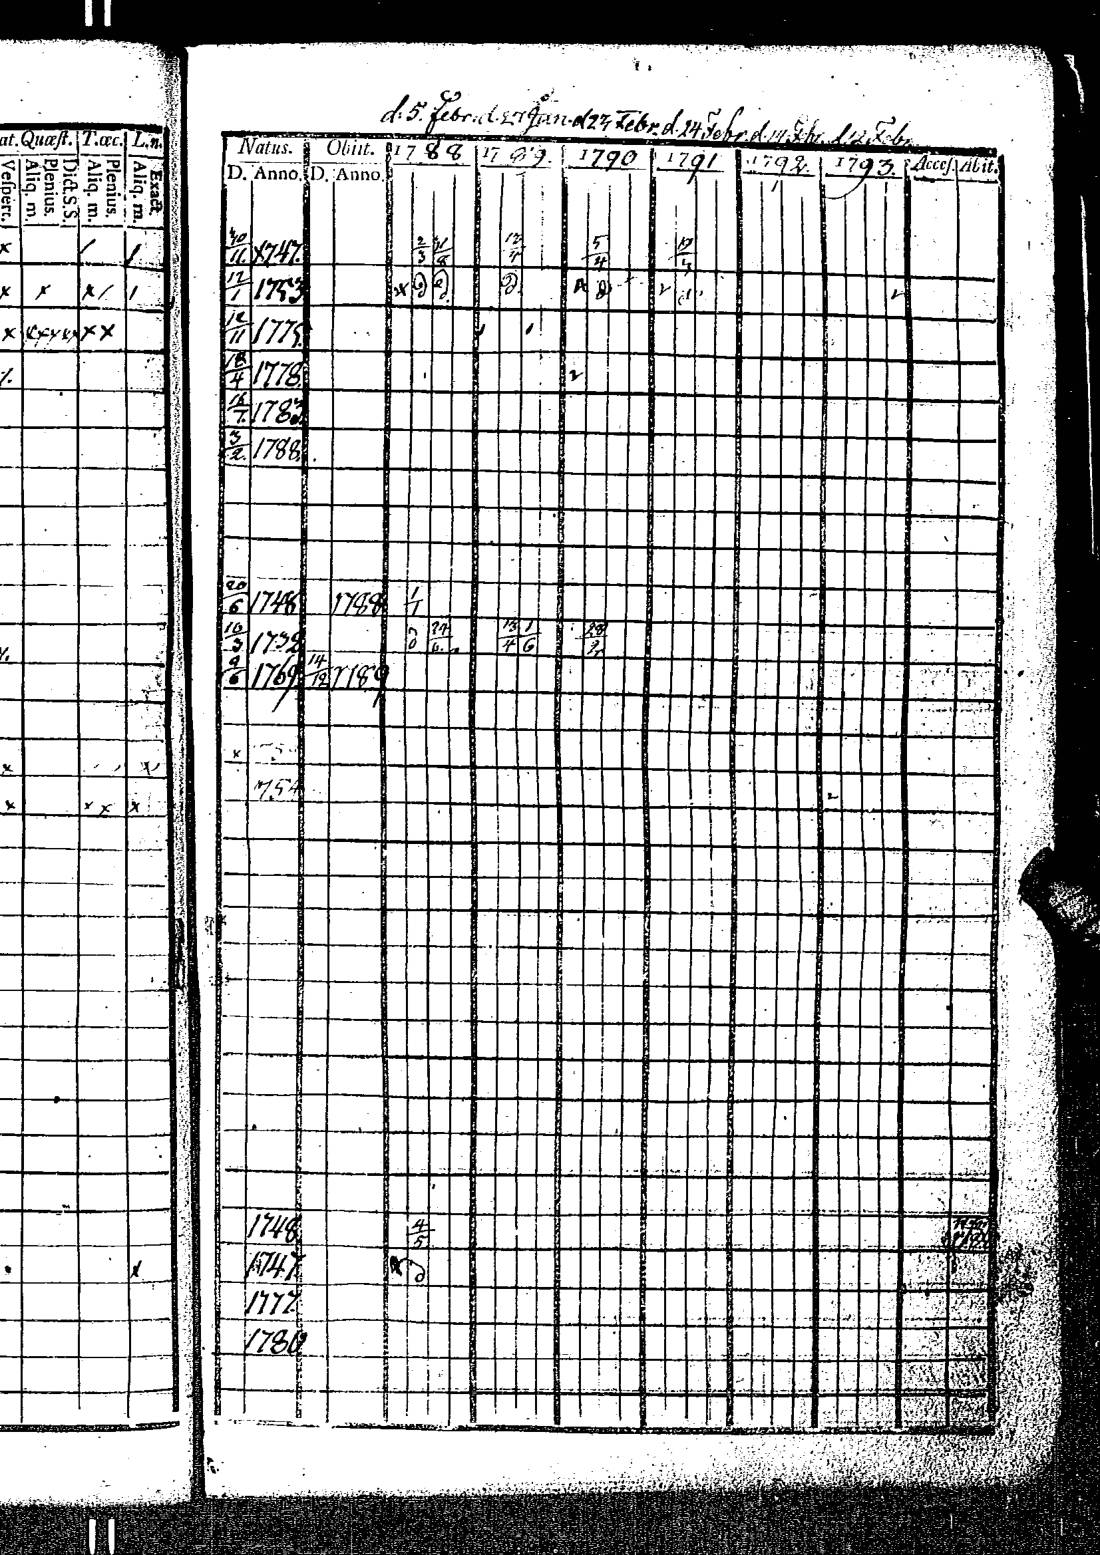 d. 5. Febr. d. 27 Jan. d 23 Febr. d. 24 Febr. d. 14 Febr. d 12 Febr.
at. Quæst. T.æc. L.n.
Vesperc. Aliq. m. Plenius. Dict. S.S. Aliq. m. Plenius. Aliq. m. Exact.
Natus. Obiit. 1788 1789. 1790 1791 1792. 1793 Access. Abit.
D. Anno. D. Anno.
x / /
30/11 1747. 2/3 31/8 12/4 5/4 17/4
x x x / 1
12/1 1753
x x x x x x x x
12/11 1775
18/4 1778 2
16/7. 1783
3/2. 1788
20/6 1748 1788 1/1
10/3 1738 13/4 1/6 28/2
9/6 1769 14/12 1789
x x
x x x x 754 2
1748 4/5
x 1747
1777
1780